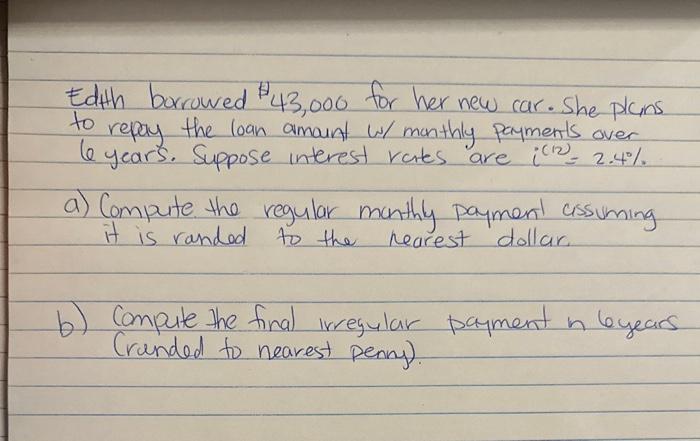 Edith borrowed $43,000 for her new car. She plans
to repay the loan amount w/ monthly payments over
6 years. Suppose interest rates are i^(12) = 2.4%.
a) Compute the regular monthly payment assuming
it is rounded to the nearest dollar.
b) Compute the final irregular payment n 6 years
(rounded to nearest penny).